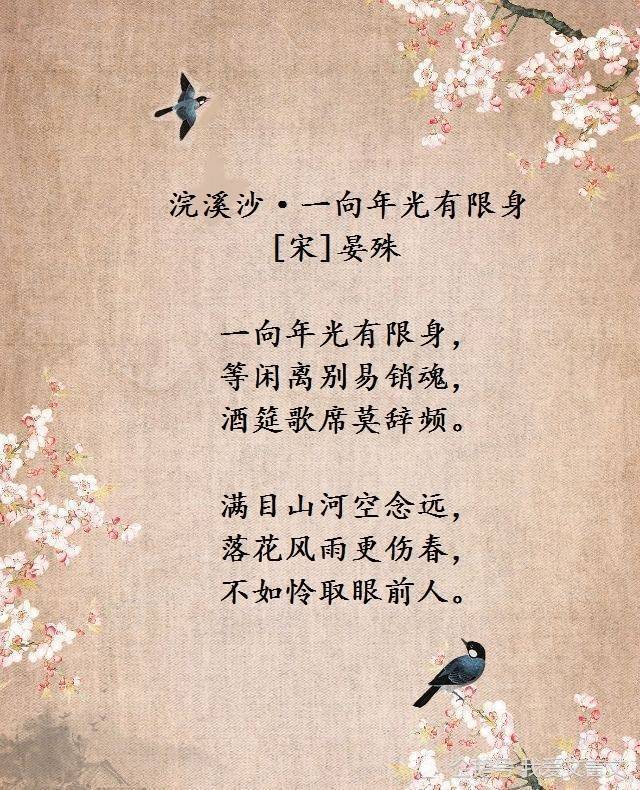 浣溪沙·一向年光有限身
[宋]晏殊
一向年光有限身，
等闲离别易销魂，
酒筵歌席莫辞频。
满目山河空念远，
落花风雨更伤春，
不如怜取眼前人。